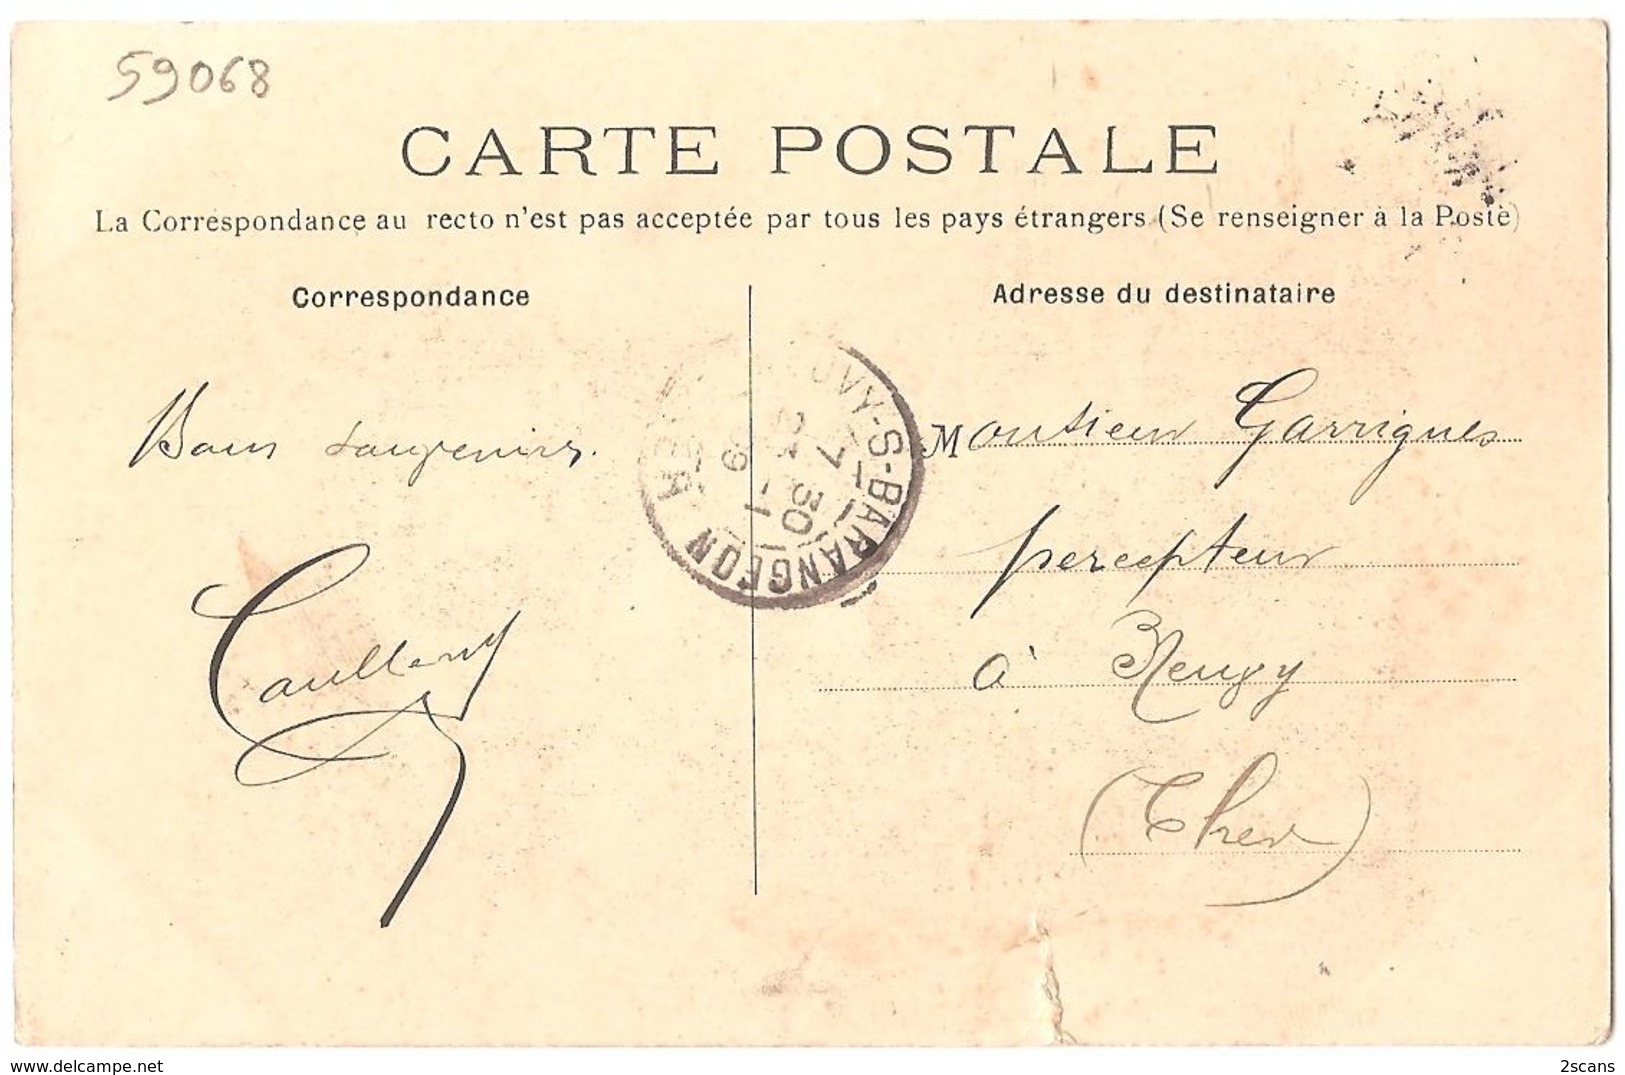 59068
CARTE POSTALE
La Correspondance au recto n'est pas acceptée par tous les pays étrangers (Se renseigner à la Poste)
Correspondance
Adresse du destinataire
Bons souvenirs.
Monsieur Garrigues
percepteur
à Neuvy
(Cher)
UVY-S-BARANGEON
7 30
CHER
delcampe.net
2scans